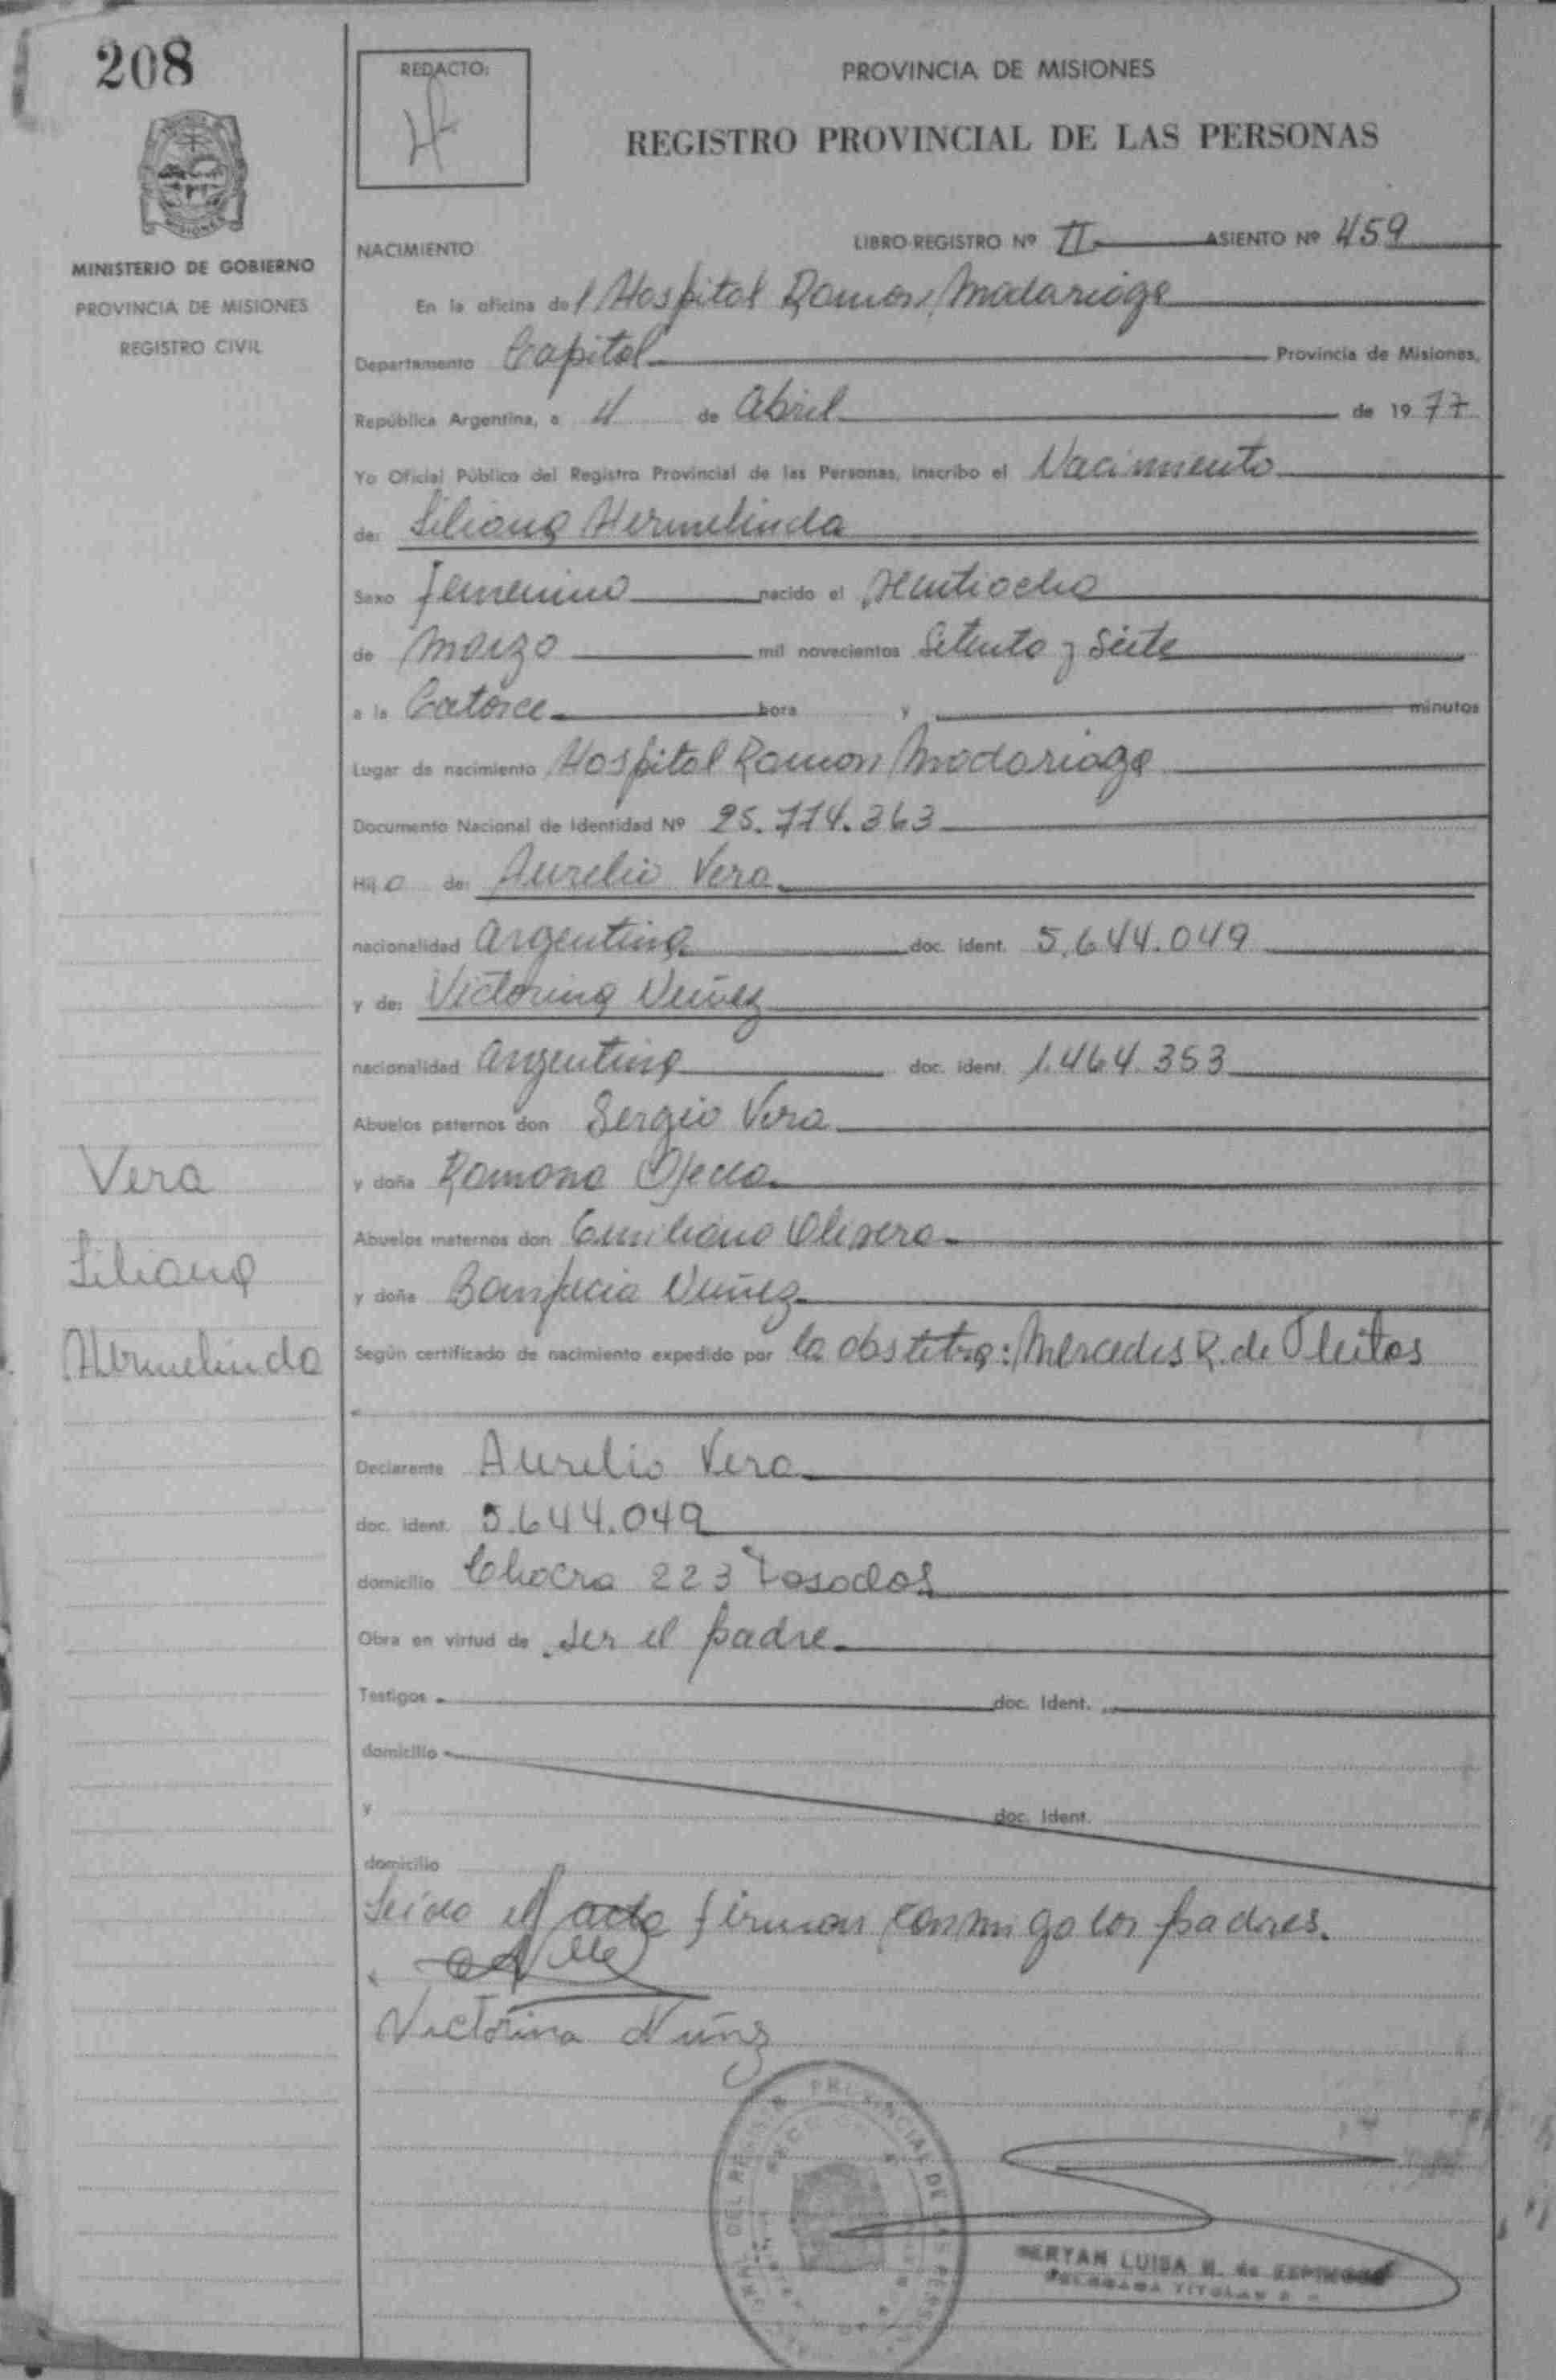 208
REDACTO:
PROVINCIA DE MISIONES
REGISTRO PROVINCIAL DE LAS PERSONAS
MISIONES
MINISTERIO DE GOBIERNO
PROVINCIA DE MISIONES
REGISTRO CIVIL
NACIMIENTO
LIBRO-REGISTRO Nº II ASIENTO Nº 459
En la oficina del Hospital Ramon Madariaga
Departamento Capital Provincia de Misiones,
República Argentina, a 4 de Abril de 1977
Yo Oficial Público del Registro Provincial de las Personas, inscribo el Nacimiento
de: Liliana Hermelinda
Sexo femenino nacido el Ventiocho
de Marzo mil novecientos Setenta y Siete
a la Catorce hora y minutos
Lugar de nacimiento Hospital Ramon Madariaga
Documento Nacional de Identidad Nº 25.774.363
Hija de: Aurelio Vera
nacionalidad argentina doc. ident. 5.644.049
y de: Victorina Nuñez
nacionalidad argentina doc. ident. 1.464.353
Abuelos paternos don Sergio Vera
y doña Ramona Ojeda
Abuelos maternos don Emiliano Olivera
y doña Bonifacia Nuñez
Vera
Liliana
Hermelinda
Según certificado de nacimiento expedido por la obstetra: Mercedes R. de Fleitas
Declarante Aurelio Vera
doc. ident. 5.644.049
domicilio Chacra 223 Posadas
Obra en virtud de ser el padre
Testigos doc. Ident.
domicilio
y doc. Ident.
domicilio
Leida el acta firman conmigo los padres.
Victorina Nuñz
PROVINCIAL DE LAS PERSONAS
LUISA